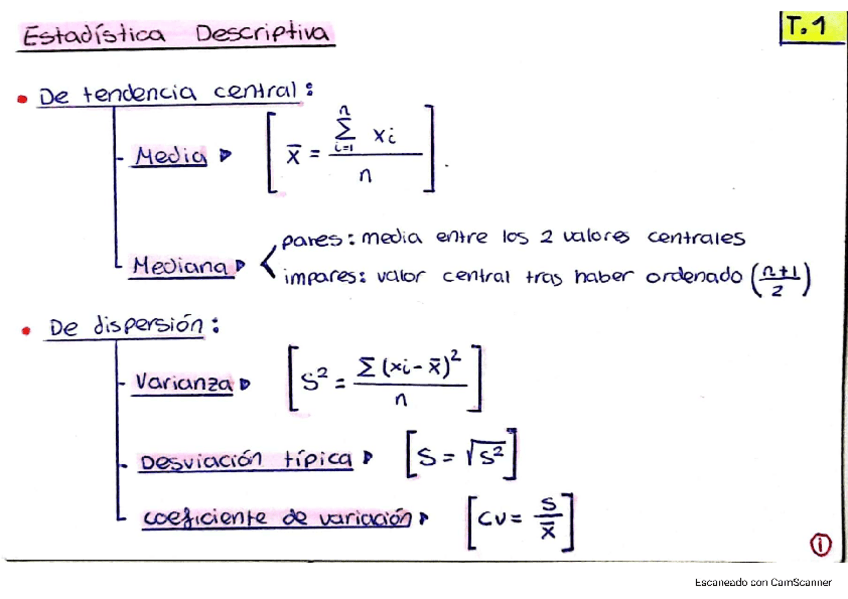 Estadística Descriptiva
T.1
• De tendencia central:
- Media ▷ [x̄ = Σ_{i=1}^{n} xi / n].
- Mediana ▷ < pares: media entre los 2 valores centrales
impares: valor central tras haber ordenado (n+1/2)
• De dispersión:
- Varianza ▷ [S² = Σ(xi - x̄)² / n]
- Desviación típica ▷ [S = √S²]
- coeficiente de variación ▷ [CV = S / x̄]
1
Escaneado con CamScanner